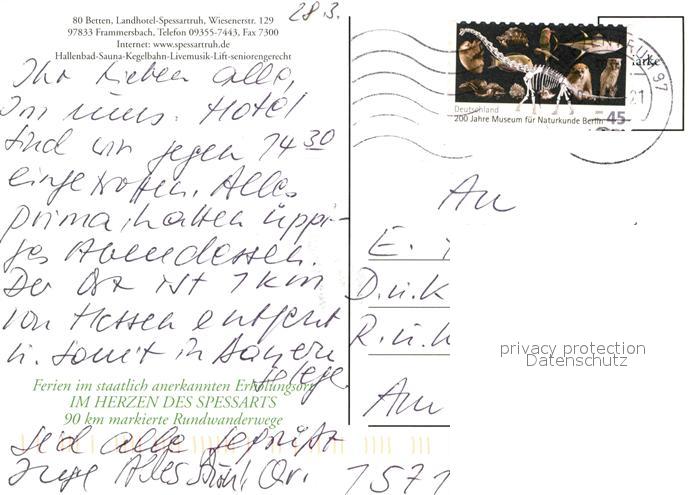 28.3.
80 Betten, Landhotel-Spessartruh, Wiesenerstr. 129
97833 Frammersbach, Telefon 09355-7443, Fax 7300
Internet: www.spessartruh.de
Hallenbad-Sauna-Kegelbahn-Livemusik-Lift-seniorengerecht
Ihr Lieben alle,
Im uns. Hotel
sind wir gegen 14 30
eingetroffen. Alles
prima, hatten üppi-
ges Abendessen.
Der Ort ist 1 km
von Hessen entfernt
u. somit in Bayern
gelegen.
Ferien im staatlich anerkannten Erholungsort
IM HERZEN DES SPESSARTS
90 km markierte Rundwanderwege
Seid alle gegrüßt
Deutschland
200 Jahre Museum für Naturkunde Berlin
45
97
21
An
E.
D.u.K
R.u.K
Am
1571
privacy protection
Datenschutz